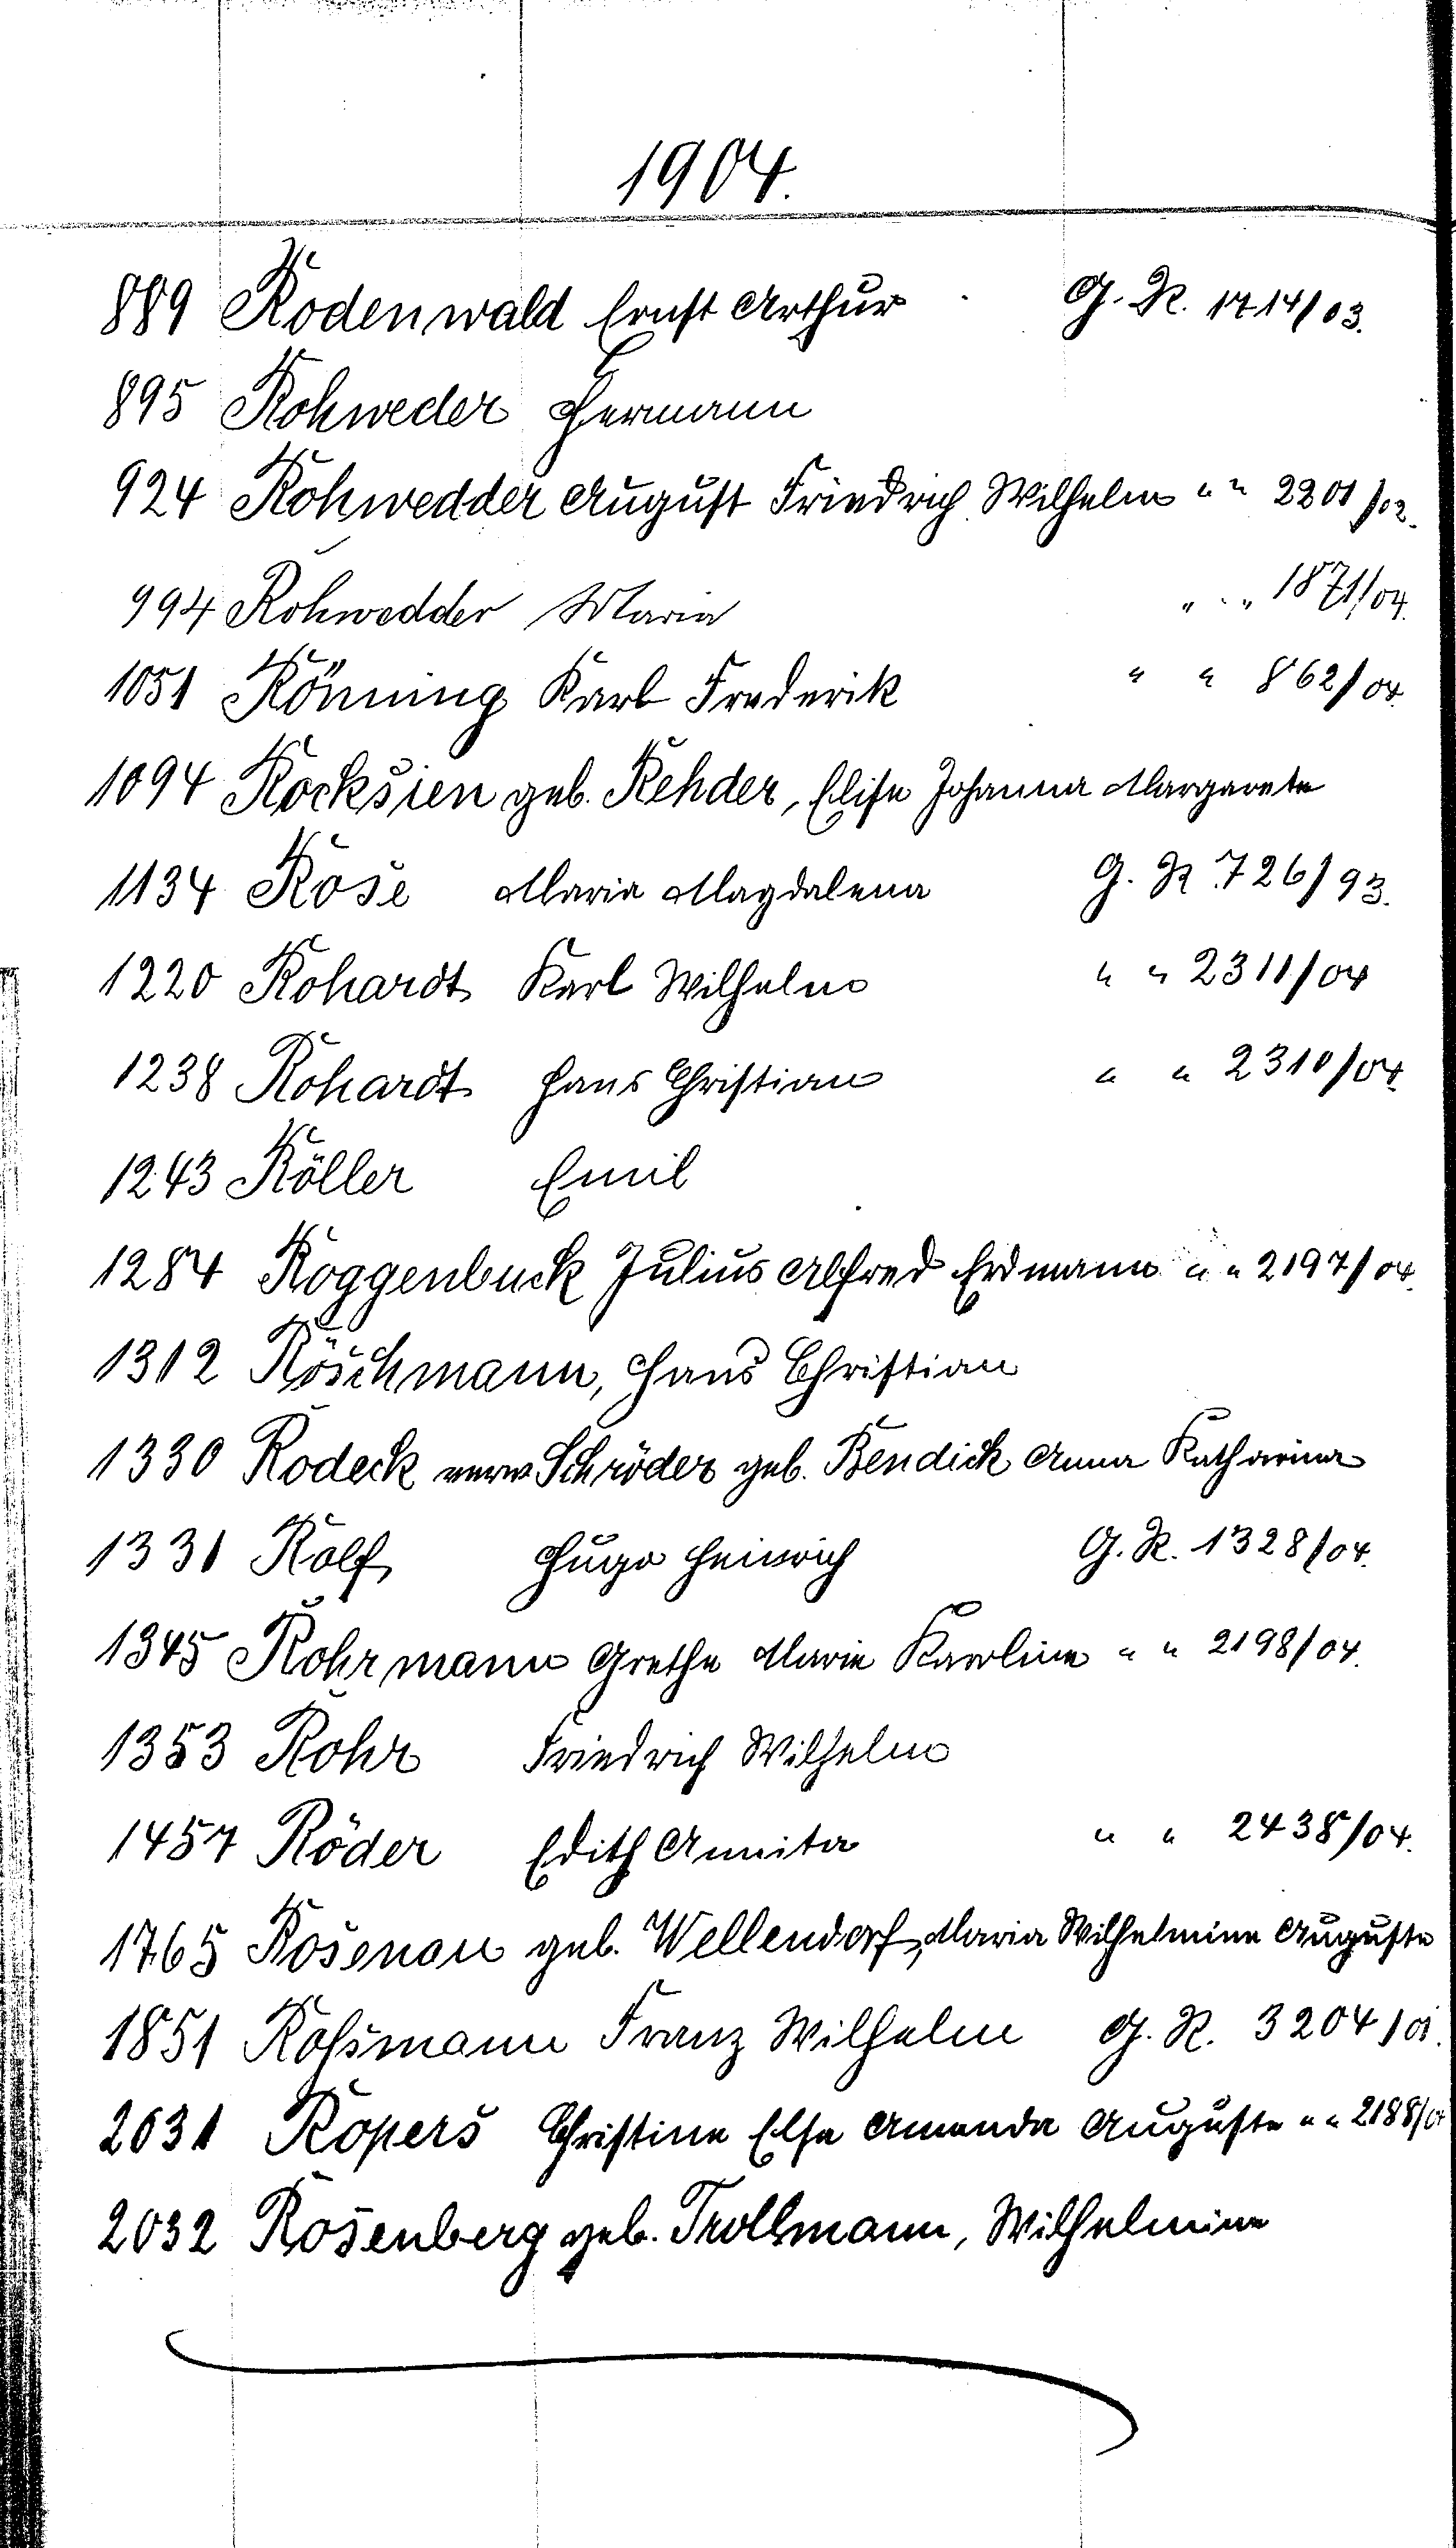 1904.
889 Rodenwald Ernst Arthur G. R. 1714/03.
895 Rohweder Hermann
924 Rohwedder August Friedrich Wilhelm " " 2201/02.
994 Rohwedder Maria " " 1871/04.
1051 Rönning Karl Frederik " " 862/04.
1094 Rocksien geb. Rehder, Elise Johanna Margarete
1134 Rose Maria Magdalena G. R. 726/93.
1220 Rohardt Karl Wilhelm " " 2311/04
1238 Rohardt Hans Christian " " 2310/04.
1243 Röller Emil
1284 Roggenbuck Julius Alfred Erdmann " " 2197/04.
1312 Röschmann, Hans Christian
1330 Rodeck verw. Schröder geb. Bendick Anna Katharina
1331 Rolf Hugo Heinrich G. R. 1328/04.
1345 Rohrmann Grethe Marie Karoline " " 2198/04.
1353 Rohr Friedrich Wilhelm
1457 Röder Edith Annita " " 2438/04.
1765 Rosenau geb. Wellendorf, Maria Wilhelmine Auguste
1851 Roßmann Franz Wilhelm G. R. 3204/01.
2031 Ropers Christine Elsa Amanda Auguste " " 2188/04
2032 Rosenberg geb. Trollmann, Wilhelmine